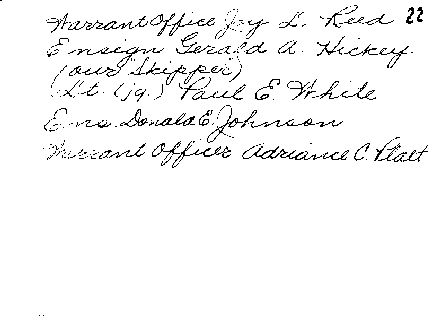 Warrant Office Joy L. Reed 22
Ensign Gerald A. Hickey
(our Skipper)
Lt (jg.) Paul E. White
Ens Donald E. Johnson
Warrant Officer Adriance C. Platt